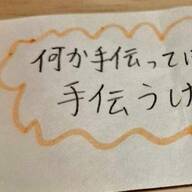 何か手伝って
手伝うけ